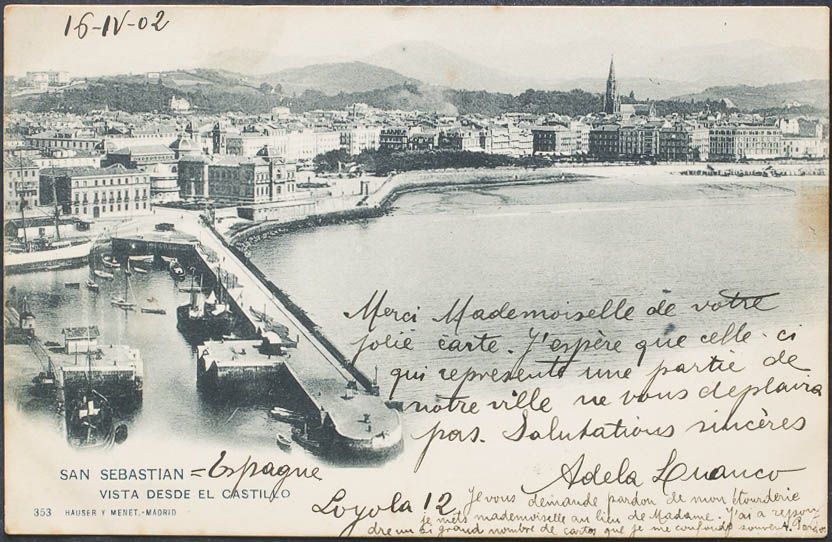 16-IV-02
Merci Mademoiselle de votre
jolie carte. J'espère que celle-ci
qui represente une partie de
notre ville ne vous deplaira
pas. Salutations sincères
Adela
SAN SEBASTIAN = Espagne
VISTA DESDE EL CASTILLO
353 HAUSER Y MENET.-MADRID
Loyola 12
Je vous demande pardon de mon étourderie
je mets mademoiselle au lieu de Madame. J'ai a repon
dre un si grand nombre de cartes que je me confonds souvent.